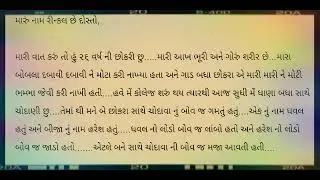 મારું નામ રીન્કલ છે દોસ્તો,
મારી વાત કરું તો હું ૨૬ વર્ષ ની છોકરી છુ.....મારી આખ ભૂરી અને ગોરું શરીર છે...મારા
બોબલા દબાવી દબાવી ને મોટા કરી નાખ્યા હતા અને ગાડ બધા છોકરા એ મારી મારી ને મોટી
ભમ્મા જેવી કરી નાખી હતી....હવે મેં કોલેજ શરુ થય ત્યારથી આજ સુધી મેં ઘણા બધા સાથે
ચોદાણી છુ....તેમાં થી મને બે છોકરા સાથે ચોદાવા નું બોવ જ ગમતું હતું....એક નું નામ ધવલ
હતું અને બીજા નું નામ હરેશ હતું...ધવલ નો લોડો બોવ જ લાંબો હતો અને હરેશ નો લોડો
બોવ જ જાડો હતો.....એટલે બને સાથે ચોદાવા ની બોવ જ મજા આવતી હતી....